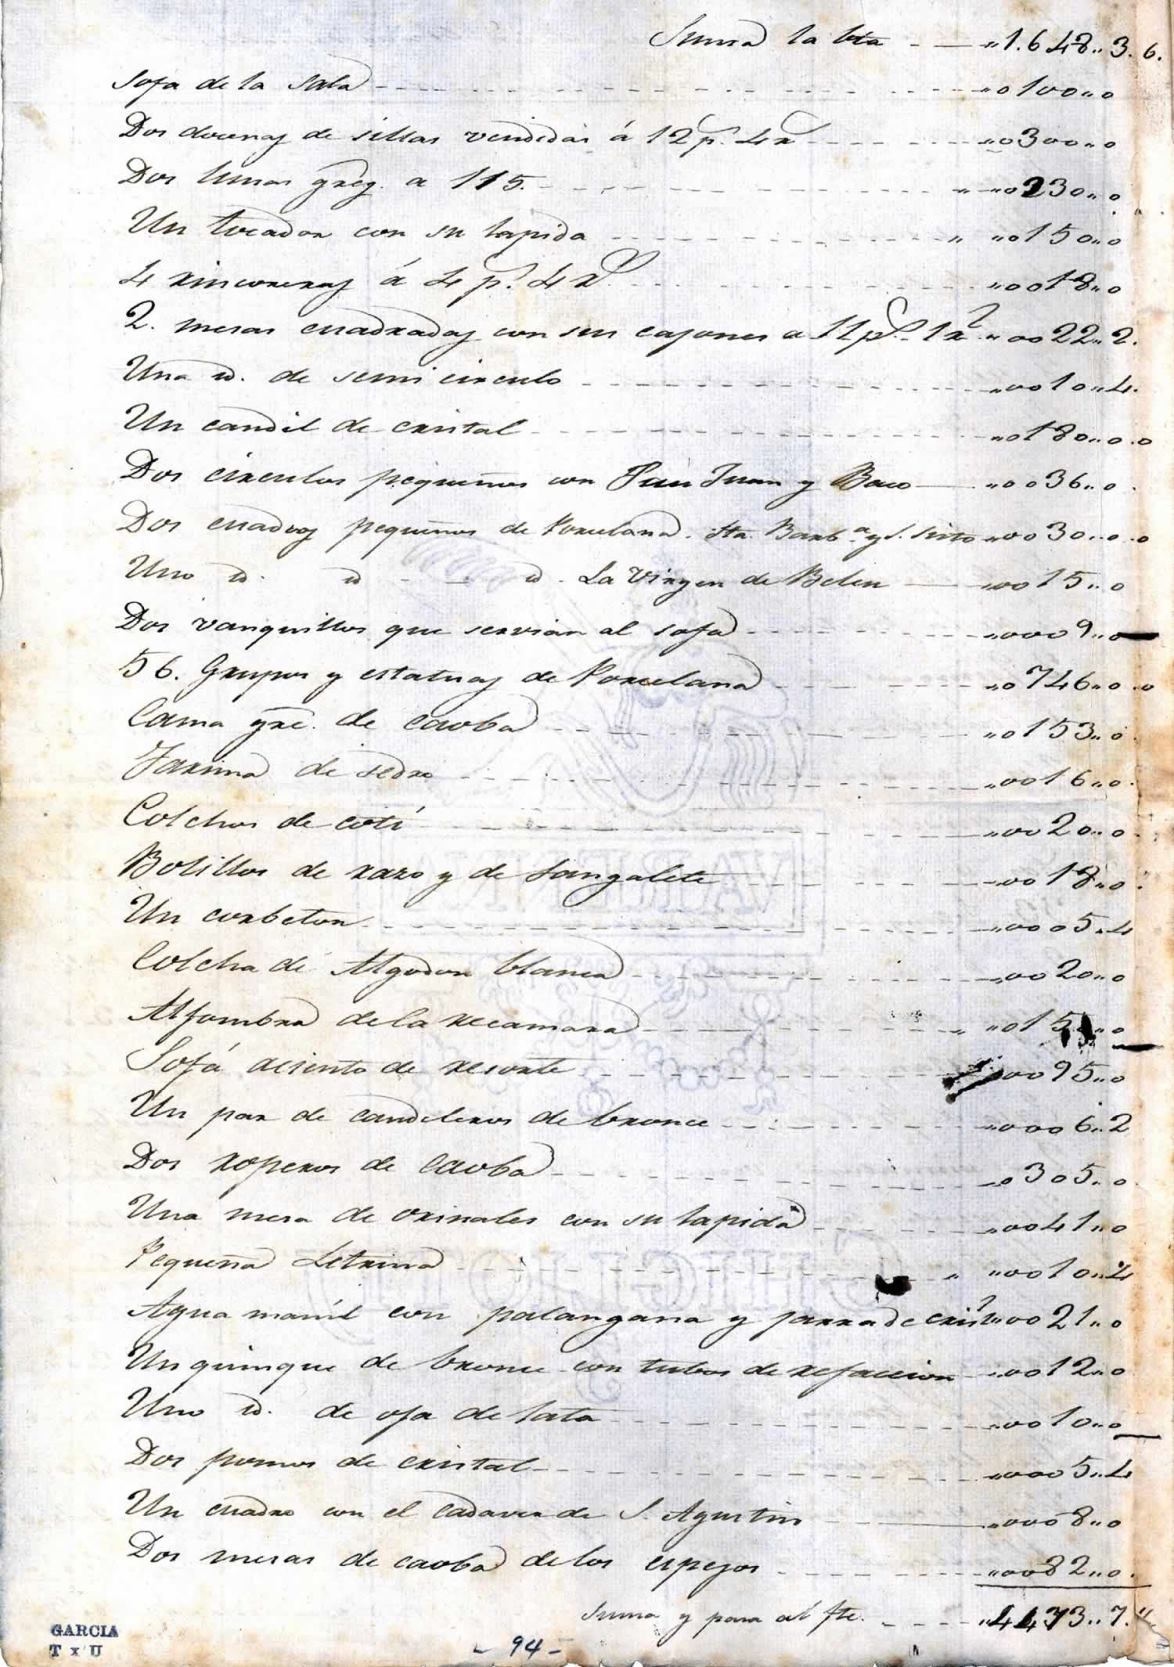 Suma la bta „1.648„3.6.
Sofa de la sala „0100„0
Dos docenas de sillas vendidas á 12 p.s 4 r „0300„0
Dos lunas gr̃es. a 115. „ „0230„0
Un tocador con su lapida „ „0150„0
4 rinconeras á 4 p.s 4 r.s „0018„0
2. mesas cuadradas con sus cajones a 11 p.s 1 r „0022„2.
Una id. de semi circulo „0010„4.
Un candil de cristal „0180„0
Dos circulos pequeños con San Juan y Baco „0036„0
Dos cuadros pequeños de Porcelana. Sta. Barb.a y S. Sisto „0030„0
Uno id. id id. La Virgen de Belen „0015„0
Dos vanquillos que servian al sofa „0009„0
56. Grupos y estatuas de Porcelana „0746„0
Cama gr̃e. de caoba „0153„0
Tarima de sedro „0016„0
Colchon de cotí „0020„0
Bolillos de razo y de sangalete „0018„0
Un corbeton „0005„4
Colcha de Algodon blanca „0020„0
Alfombra de la recamara „ „015 „0
Sofá asiento de resorte „0095„0
Un par de candeleros de bronce „0006„2
Dos roperos de caoba „0305„0
Una mesa de orinales con su lapida „0041„0
Pequeña Letrina „ „0010„4
Agua manil con palangana y jarra de crist.l „0021„0
Un quinque de bronce con tubos de refaccion „0012„0
Uno id. de oja de lata „0010„0
Dos pomos de cristal „0005„4
Un cuadro con el cadaver de S. Agustin „0008„0
Dos mesas de caoba de los espejos „0082„0.
Suma y pasa al fte. „4473„7.
GARCIA
T x U
- 94 -